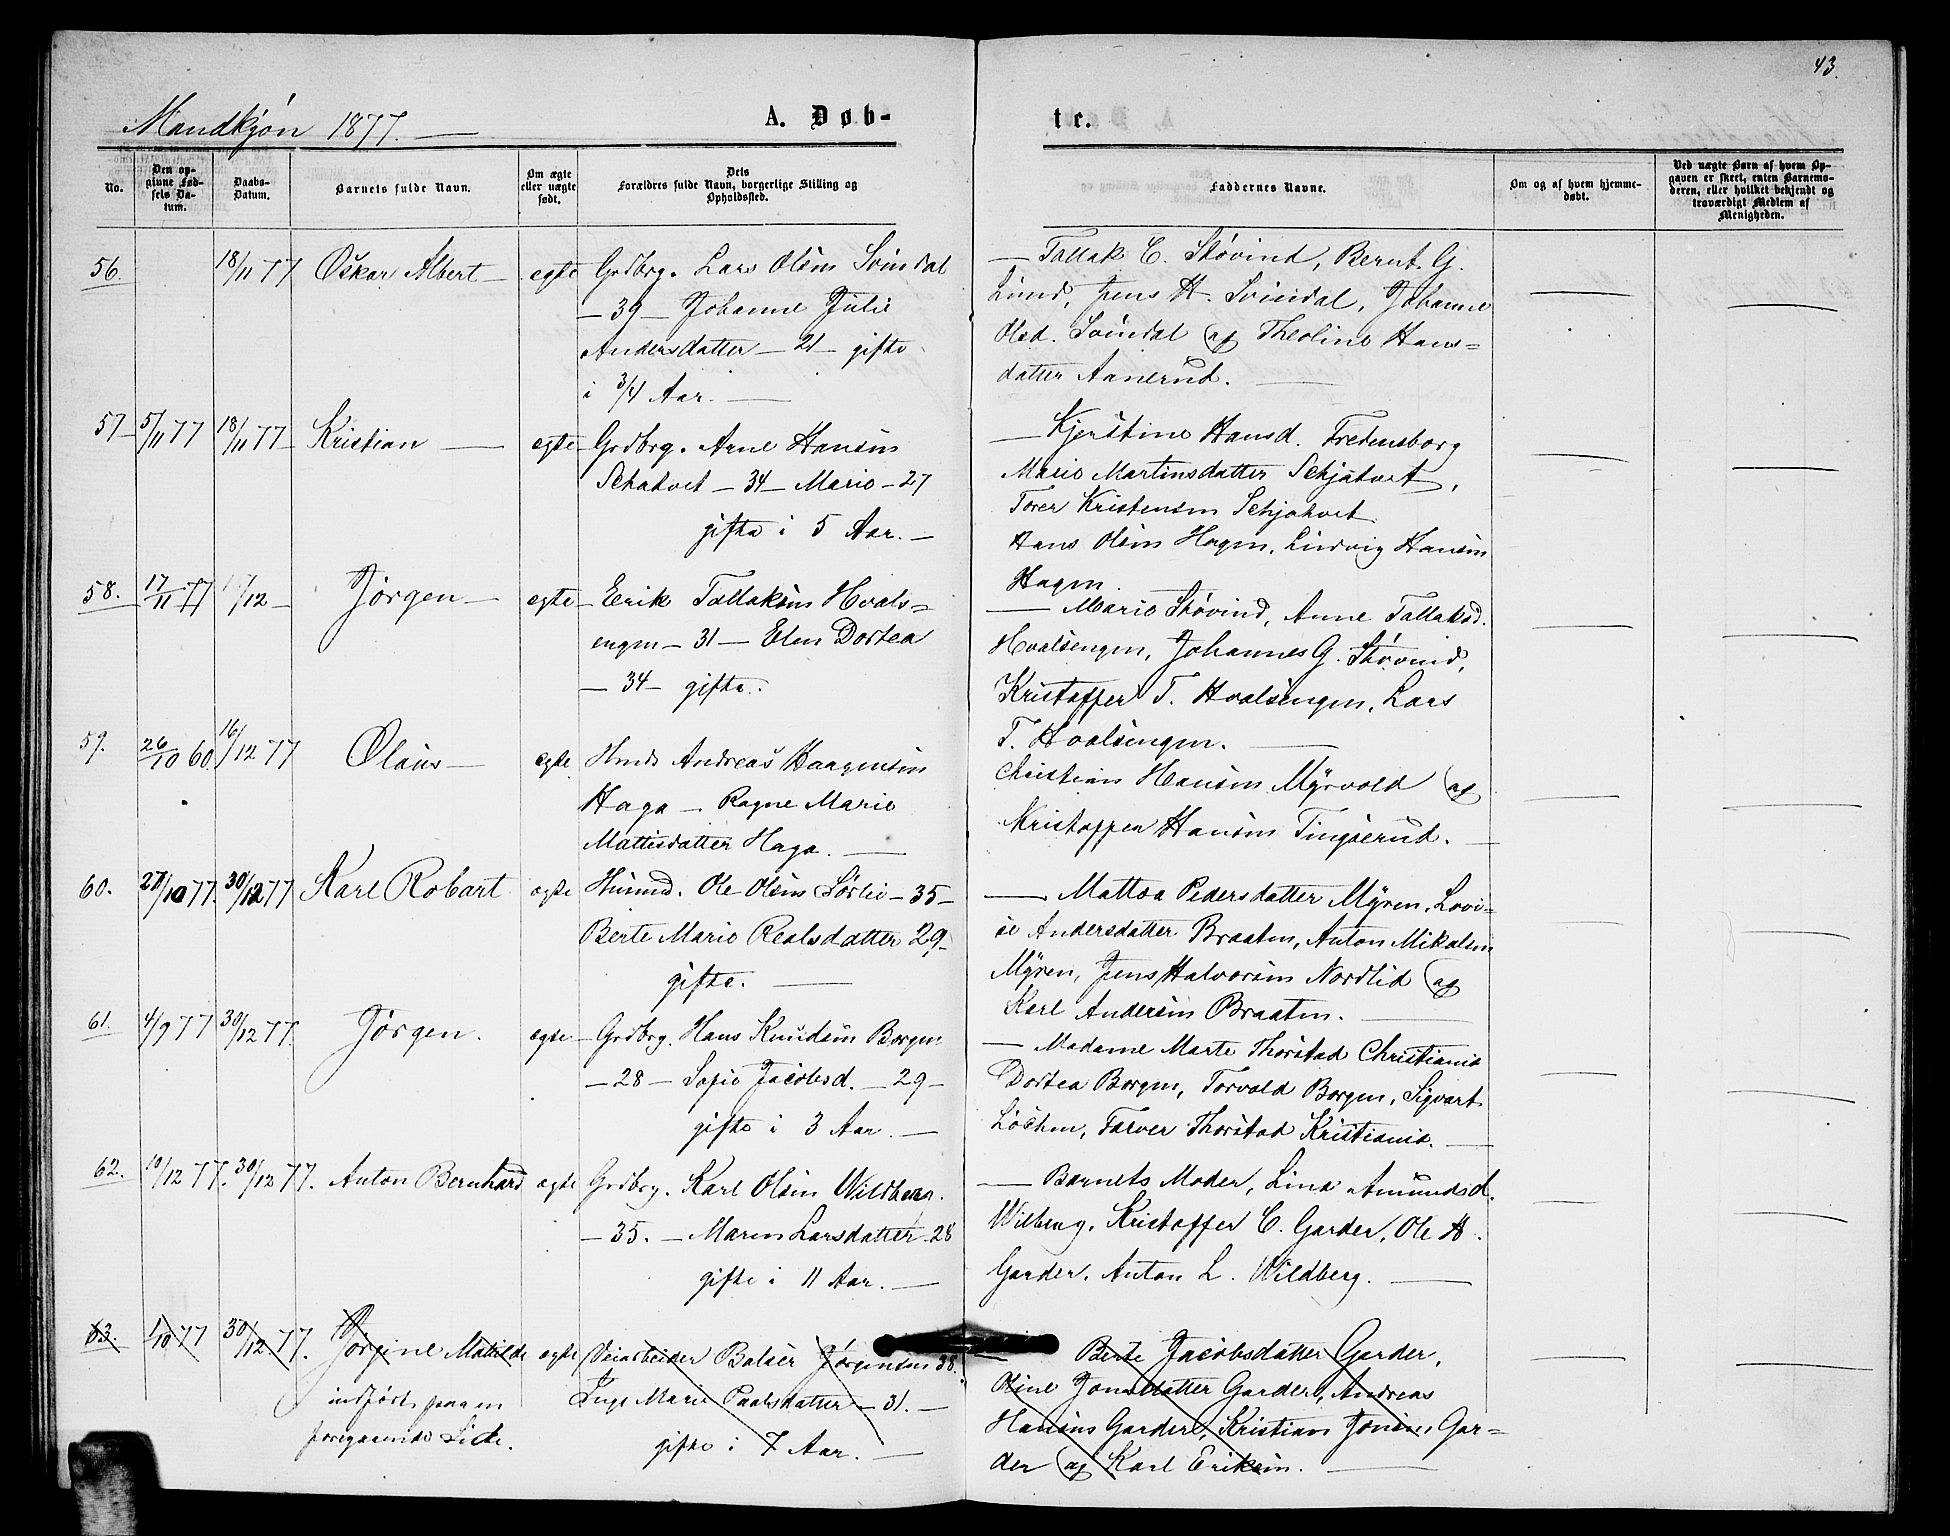 43.
Mandkjön 1877.
A. Døb-
te.
No.
Den op-
givne Fød-
sels Da-
tum.
Daabs-
Datum.
Barnets fulde Navn.
Om ægte
eller uægte
født.
Dets
Forældres fulde Navn, borgerlige Stilling og
Opholdssted.
Faddernes Navne.
Om og af hvem hjemme-
døbt.
Ved uægte Børn af hvem Op-
gaven er skeet, enten Barnemo-
deren, eller hvilket bekjendt og
troværdigt Medlem af
Menigheden.
56. 18/11 77 Oskar Albert egte Grdbrg. Lars Olsen Svindal
— 39 — Johanne Julie
Andersdatter — 21 — gifte
i 3/4 Aar.
— Tallak C. Støvind, Bernt G.
Lund, Jens H. Svindal, Johanne
Olsd. Svindal og Theoline Hans=
datter Aanerud.
57 5/11 77 18/11 77 Kristian egte Grdbrg. Arne Hansen
— 34 — Marie — 27
gifte i 5 Aar. —
— Kjerstine Hansd. Fredensborg
Marie Martinsdatter
Torer Kristensen
Hans Olsen Hagen, Ludvig Hansen
Hagen.
58. 17/11 77 /12 Jörgen egte Erik Tallaksen Hvals=
engen — 31 — Elen Dortea
— 34 — gifte.
— Marie Støvind, Anne Tallaksd.
Hvalsengen, Johannes G. Støvind,
Kristoffer T. Hvalsengen, Lars
T. Hvalsengen.
59. 26/10 60. 16/12 77 Olaus egte Andreas Haagensen
Haga — Ragne Marie
Mattisdatter Haga.
Christian Hansen Myrvold og
Kristoffer Hansen Tingserud.
60. 27/10 77. 30/12 77 Karl Robart egte Husmd. Ole Olsen Sörlie — 35 —
Berte Marie 29 —
gifte.
— Mattea Pedersdatter Myren, Lovi=
se Andersdatter Braaten, Anton Mikalsen
Myren, Jens Halvorsen Nordlid og
Karl Andersen Braaten.
61. 4/9 77 30/12 77. Jörgen. egte Grdbrg. Hans Knudsen Borgen
— 28 — Sofie Jacobsd. — 29 —
gifte i 3 Aar. —
— Madame Marte Thorstad Christiania
Dortea Borgen, Torvald Borgen, Sigvart
Farver Thorstad Kristiania.
62. 10/12 77. 30/12 77. Anton Bernhard egte Grdbrg. Karl Olsen Wildberg.
— 35. — Maren Larsdatter 28
gifte i 11 Aar. —
— Barnets Moder, Lina Amundsd.
Wilberg, Kristoffer C. Garder, Ole H.
Garder, Anton L. Wildberg.
63. 1/10 77 30/12 77. Jörgine Matilde egte Veiarbeider Balser Jörgensen 38.
Inge Marie Paalsdatter — 31. —
gifte i 7 Aar. —
indført paa en
foregaaende Side.
— Berte Jacobsdatter Garder,
Oline Jonsdatter Garder, Andreas
Hansens Garder, Kristian Jonsen, Gar=
der og Karl Eriksen.